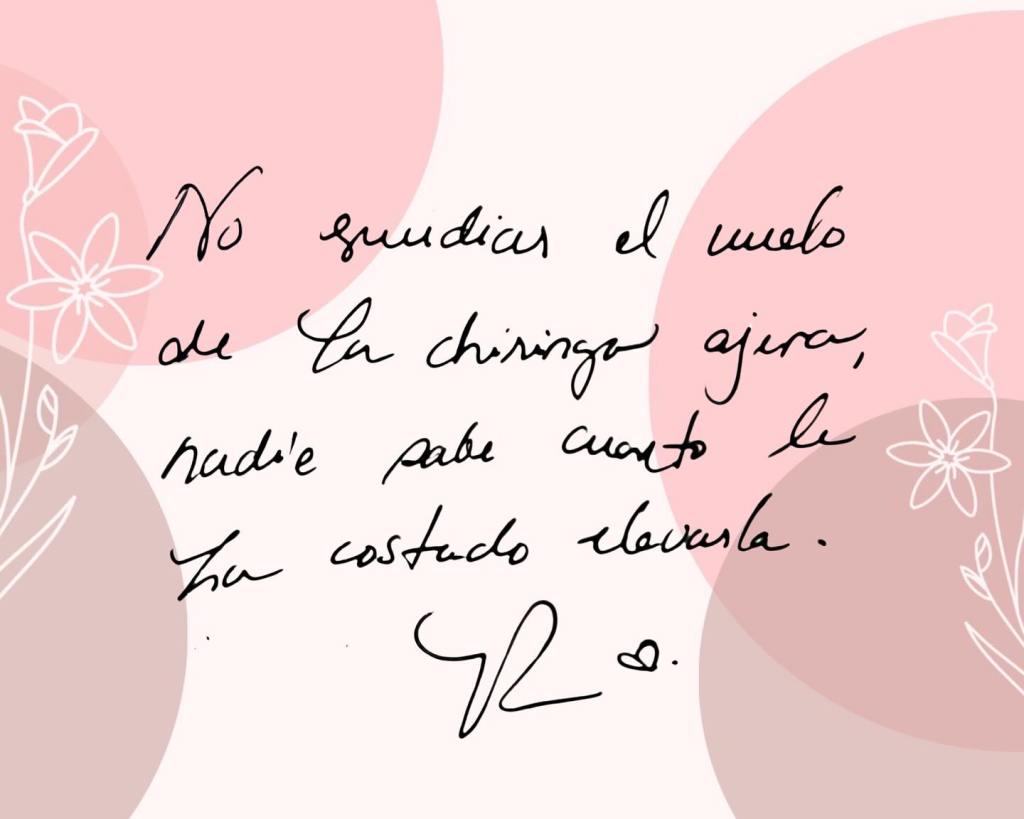 No envidies el vuelo
de la chiringa ajena,
nadie sabe cuanto le
ha costado elevarla.
YR